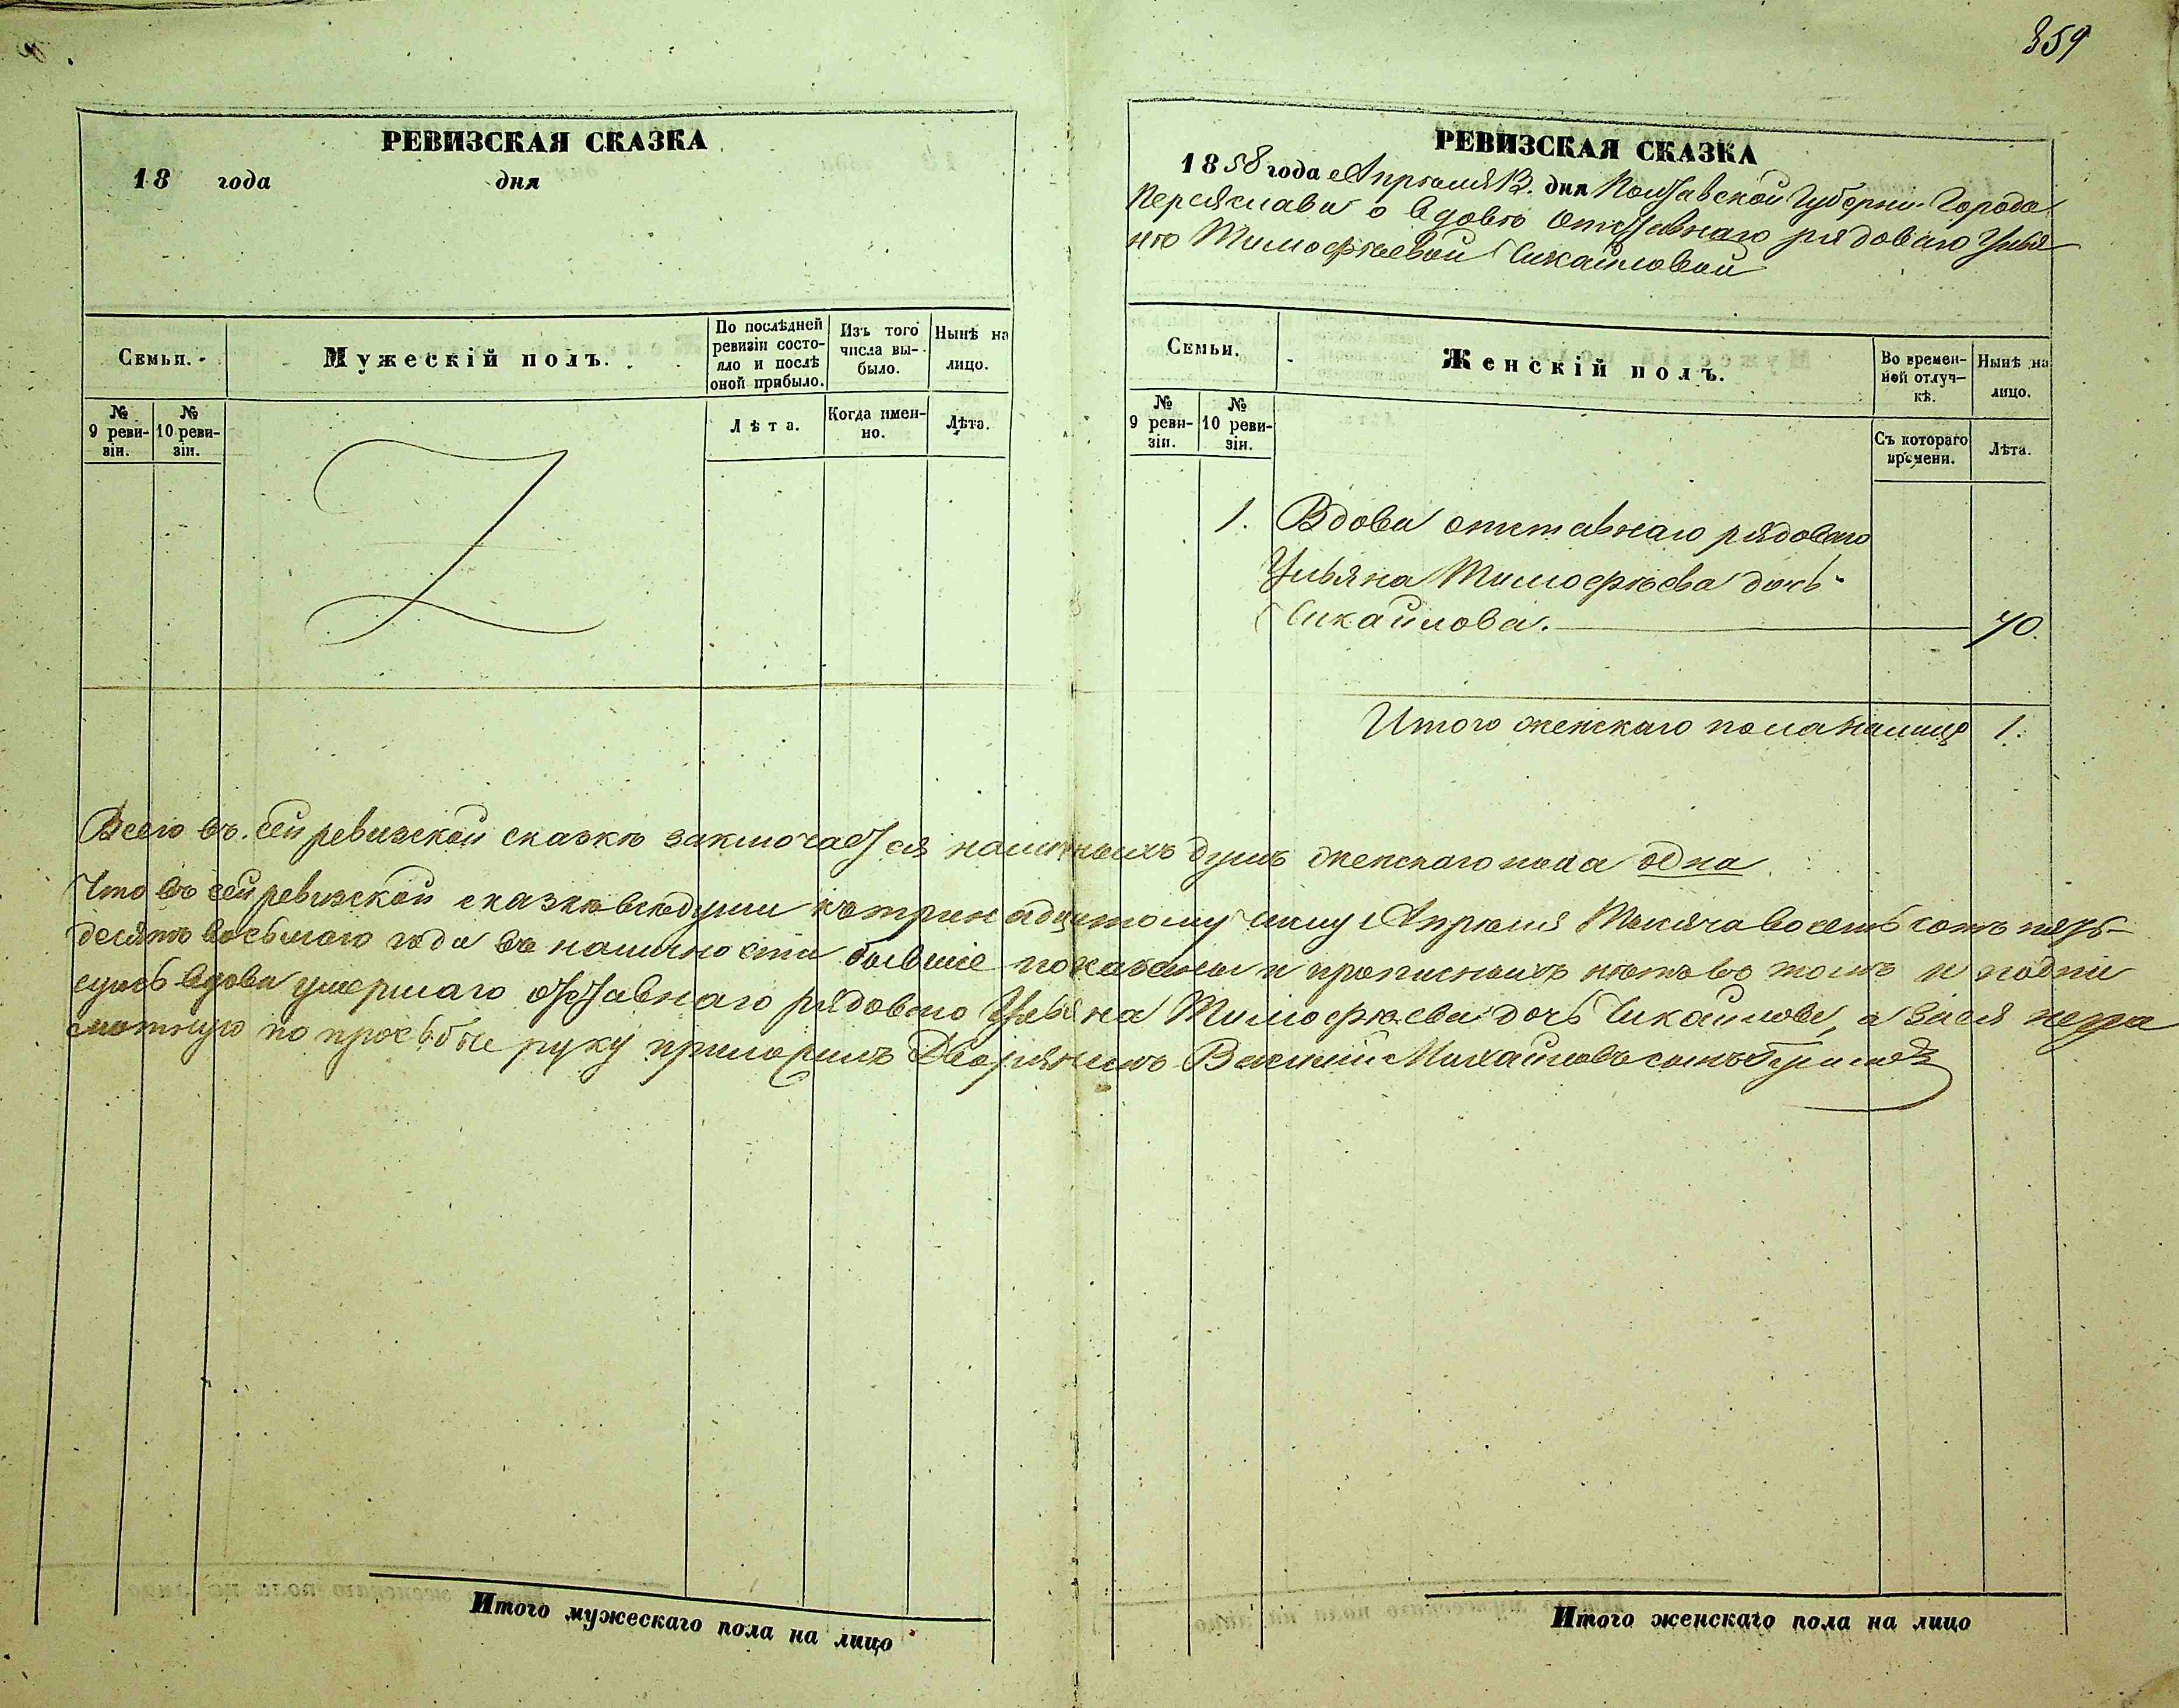 359
РЕВИЗСКАЯ СКАЗКА
18 года дня
Семьи.
Мужескій полъ.
По послѣдней ревизіи состояло и послѣ оной прибыло.
Изъ того числа выбыло.
Нынѣ на лицо.
№ 9 ревизіи.
№ 10 ревизіи.
Лѣта.
Когда именно.
Лѣта.
РЕВИЗСКАЯ СКАЗКА
1858 года Апрѣля 13. дня Полтавской Губерніи Города
Переяслава о вдовѣ отставнаго рядоваго Улья
нѣ Тимофѣевой Чикайловой
Семьи.
Женскій полъ.
Во временной отлучкѣ.
Нынѣ на лицо.
№ 9 ревизіи.
№ 10 ревизіи.
Съ котораго времени.
Лѣта.
1. Вдова отставнаго рядоваго
Ульяна Тимофѣева дочь
Чикайлова. 70.
Итого женскаго пола налицо 1.
Всего въ сей ревизской сказкѣ заключается наличныхъ душъ женскаго пола одна.
Что въ сей ревизской сказкѣ всѣ души къ тринадцатому числу Апрѣля Тысяча восемь сотъ пять-
десятъ восьмого года въ наличности бывшіе показаны и прописныхъ нѣтъ въ томъ и подпи
суюсь вдова умершаго отставнаго рядоваго Ульяна Тимофѣева дочь Чикайлова, а за нея негра
мотную по просьбѣ руку приложилъ Дворянинъ Михайловъ сынъ
Итого мужескаго пола на лицо
Итого женскаго пола на лицо